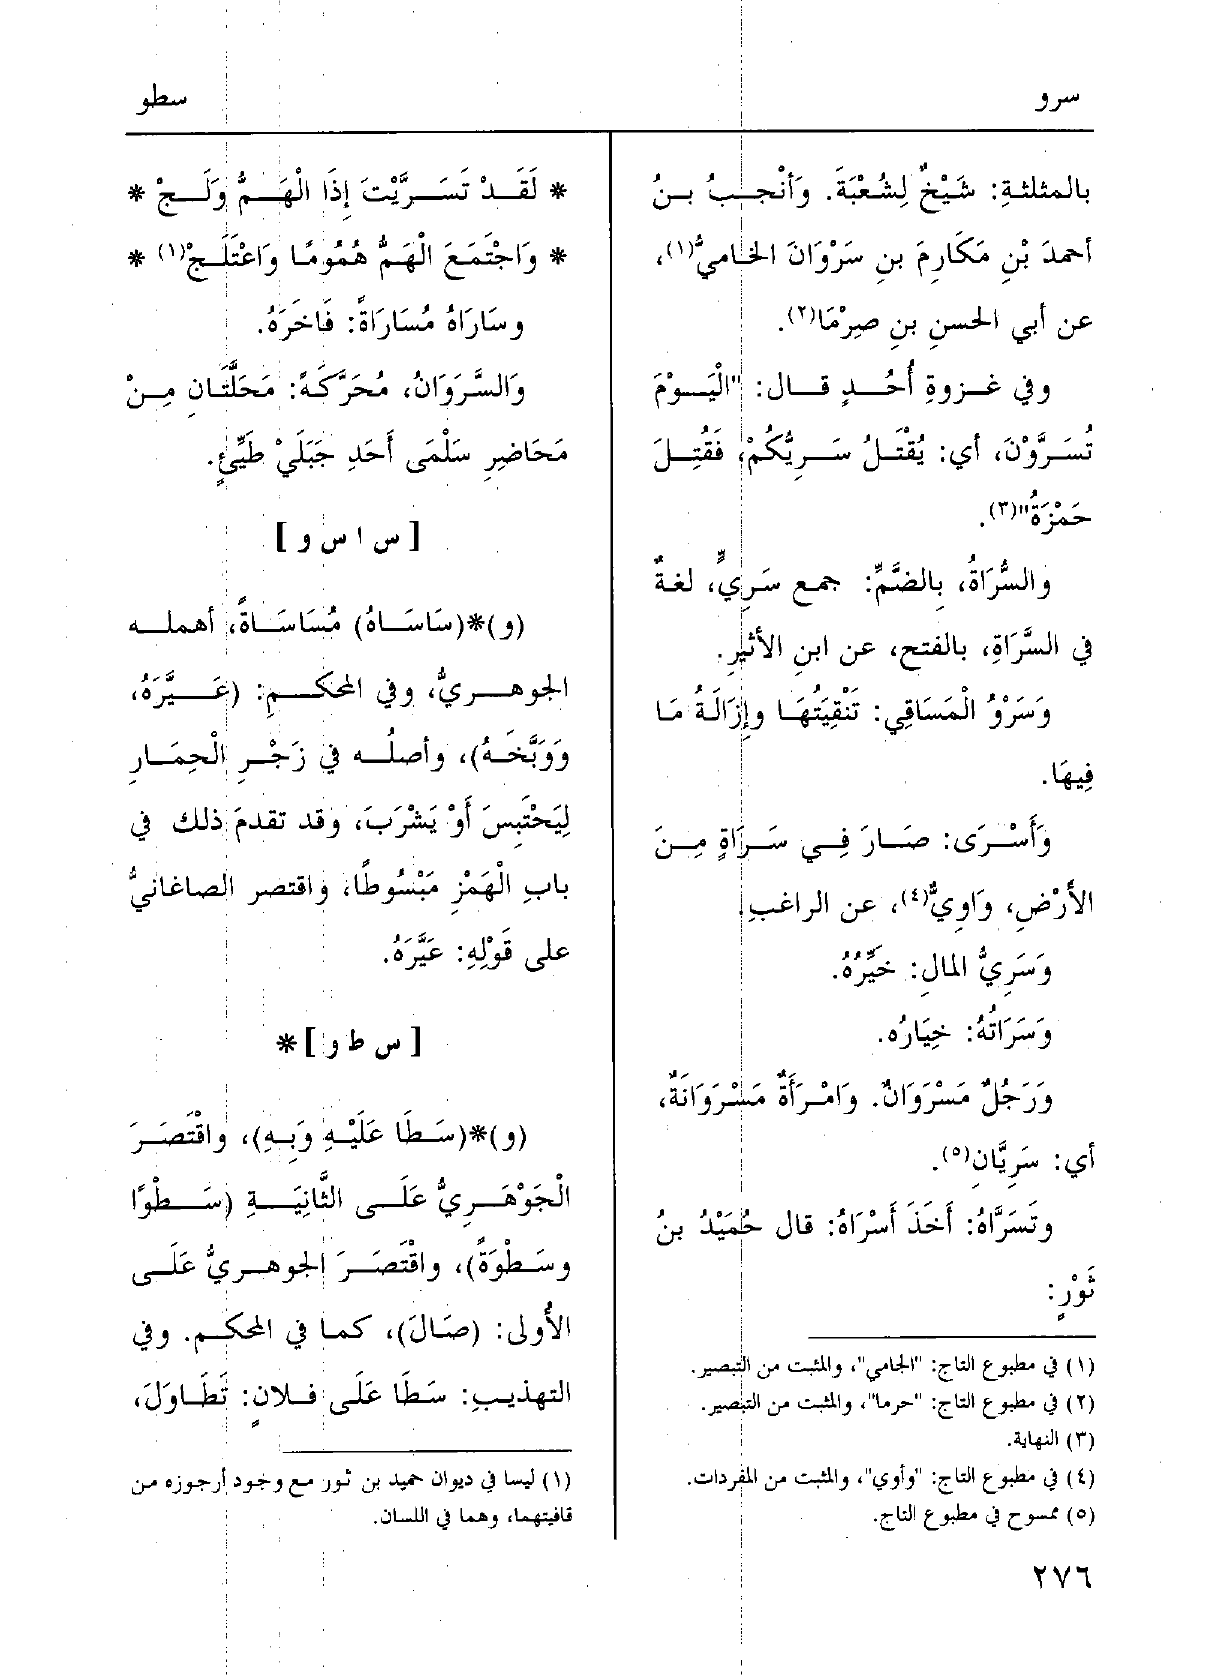 سرو
سطو
بالمثلثةِ: شَيْخٌ لِشُعْبَةَ. وَأَنْجَبُ بنُ
أحمدَ بْنِ مَكَارِمَ بنِ سَرْوَانَ الحَامِيُّ(١)،
عن أبي الحسنِ بنِ صِرْمَا(٢).
وفي غزوةِ أُحُدٍ قال: "الْيَوْمَ
تُسَرَّوْنَ، أي: يُقْتَلُ سَرِيُّكُمْ، فَقُتِلَ
حَمْزَةُ"(٣).
والسُّرَاةُ، بِالضَّمِّ: جمع سَرِيٍّ، لغةٌ
في السَّرَاةِ، بالفتحِ، عن ابنِ الأثيرِ.
وَسَرْوُ الْمَسَاقِي: تَنْقِيَتُهَا وإِزَالَةُ مَا
فِيهَا.
وَأَسْرَى: صَارَ فِي سَرَاةٍ مِنَ
الأَرْضِ، وَاوِيٌّ(٤)، عن الراغبِ.
وَسَرِيُّ المَالِ: خَيِّرُهُ.
وَسَرَاتُهُ: خِيَارُه.
وَرَجُلٌ مَسْرَوَانٌ. وَامْرَأَةٌ مَسْرَوَانَةٌ،
أي: سَرِيَّانِ(٥).
وتَسَرَّاهُ: أَخَذَ أَسْرَاهُ: قال حُمَيْدُ بنُ
ثَوْرٍ:
(١) في مطبوع التاج: "الجامي"، والمثبت من التبصير.
(٢) في مطبوع التاج: "حرما"، والمثبت من التبصير.
(٣) النهاية.
(٤) في مطبوع التاج: "وأوي"، والمثبت من المفردات.
(٥) ممسوح في مطبوع التاج.
* لَقَدْ تَسَرَّيْتَ إِذَا الْهَمُّ وَلَجْ *
* وَاجْتَمَعَ الْهَمُّ هُمُومًا وَاعْتَلَجْ(١) *
وسَارَاهُ مُسَارَاةً: فَاخَرَهُ.
وَالسَّرَوَانُ، مُحَرَّكَةً: مَحَلَّتَانِ مِنْ
مَحَاضِرِ سَلْمَى أَحَدِ جَبَلَيْ طَيِّئٍ.
[ س ا س و ]
(و)*(سَاسَاهُ) مُسَاسَاةً، أهمله
الجوهريُّ، وفي المحكمِ: (عَيَّرَهُ،
وَوَبَّخَهُ)، وأصلُه في زَجْرِ الْحِمَارِ
لِيَحْتَبِسَ أَوْ يَشْرَبَ، وقد تقدمَ ذلك في
بابِ الْهَمْزِ مَبْسُوطًا، واقتصر الصاغانيُّ
على قَوْلِهِ: عَيَّرَهُ.
[ س ط و ]*
(و)*(سَطَا عَلَيْهِ وَبِهِ)، واقْتَصَرَ
الْجَوْهَرِيُّ عَلَى الثَّانِيَةِ (سَطْوًا
وسَطْوَةً)، واقْتَصَرَ الجوهريُّ عَلَى
الأُولى: (صَالَ)، كما في المحكم. وفي
التهذيبِ: سَطَا عَلَى فلانٍ: تَطَاوَلَ،
(١) ليسا في ديوان حميد بن ثور مع وجود أرجوزه من
قافيتهما، وهما في اللسان.
٢٧٦